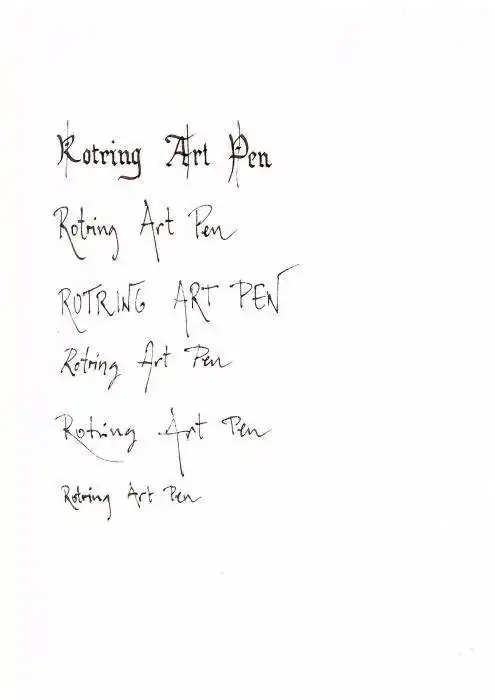 Rotring Art Pen
Rotring Art Pen
ROTRING ART PEN
Rotring Art Pen
Rotring Art Pen
Rotring Art Pen